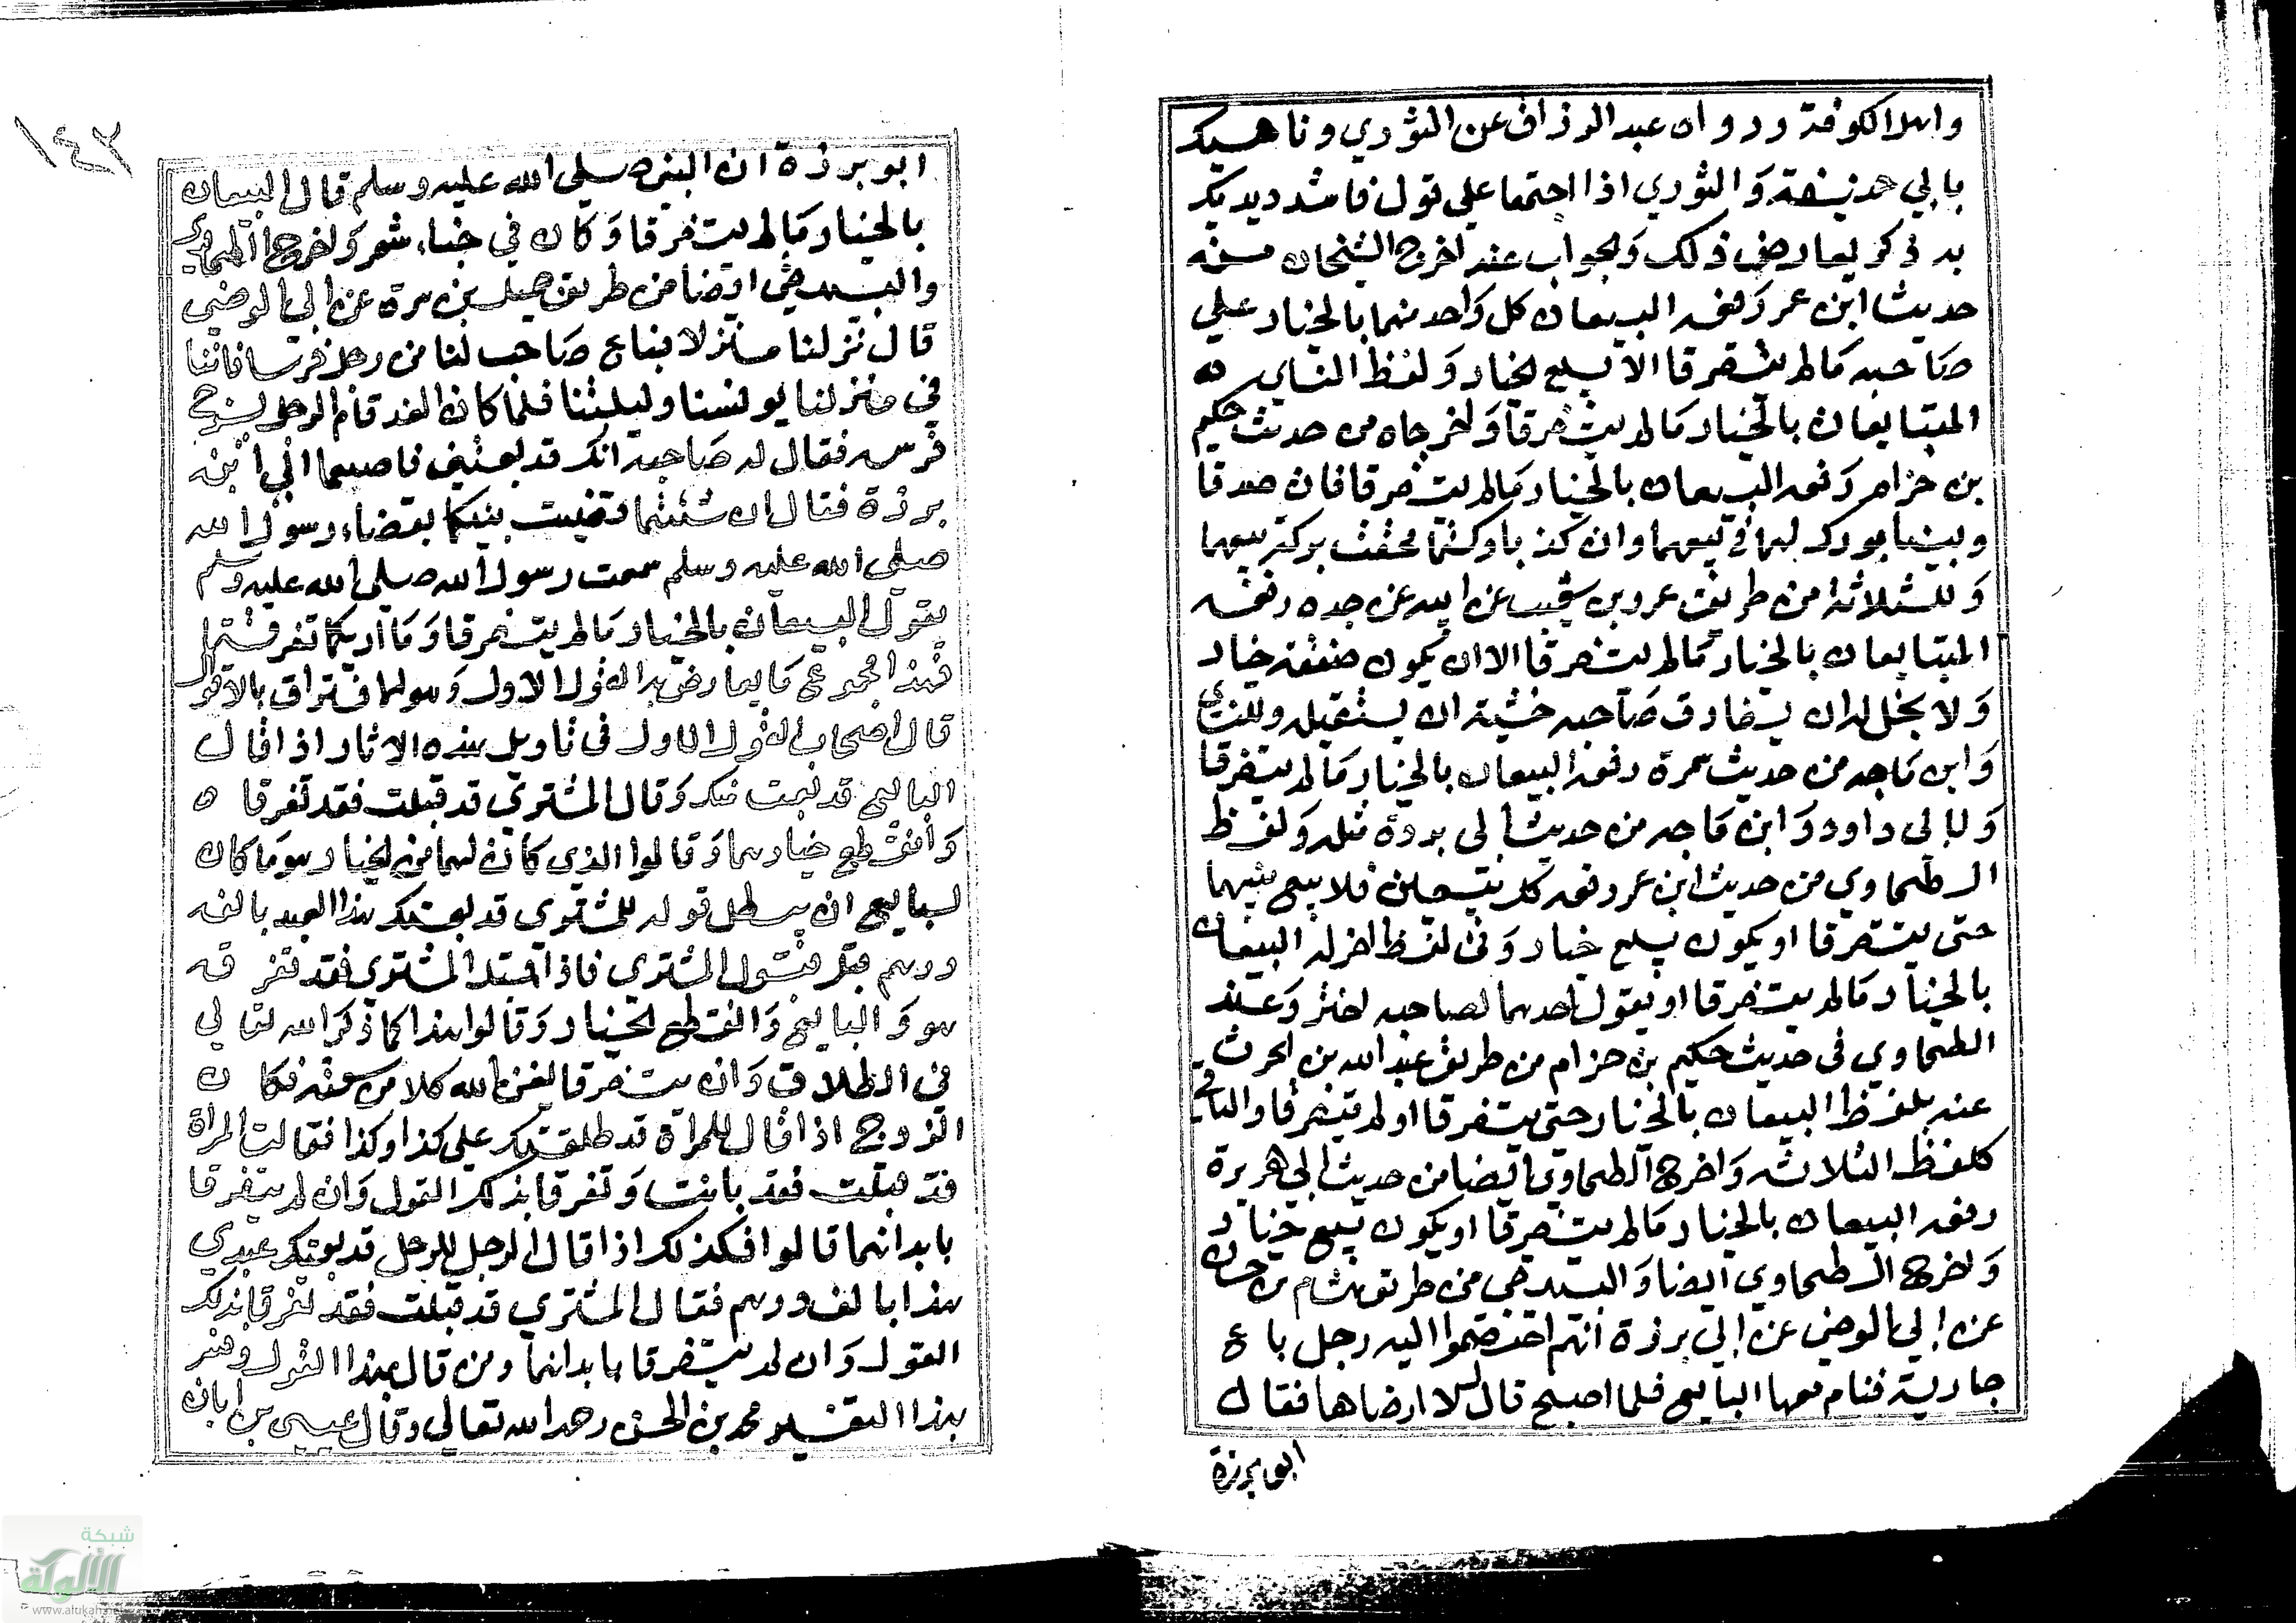 واهل الكوفة ورواه عبد الرزاق عن الثوري وناهيك
بابي حنيفة والثوري اذا اجتمعا علي قول فاشدد يديك
به ذكر يعارض ذلك والجواب عنه اخرج الشيخان من
حديث ابن عمر رفعه البيعان كل واحد منهما بالخيار علي
صاحبه مالم يتفرقا الا بيع الخيار ولفظ النساي
المتبايعان بالخيار مالم يتفرقا واخرجاه من حديث حكيم
بن حزام رفعه البيعان بالخيار مالم يتفرقا فان صدقا
وبينا بورك لهما في بيعهما وان كذبا وكتما محقت بركة بيعهما
وللثلاثة من طريق عمرو بن شعيب عن ابيه عن جده رفعه
المتبايعان بالخيار مالم يتفرقا الا ان يكون صفقة خيار
ولا يحل له ان يفارق صاحبه خشية ان يستقيله وللنساي
وابن ماجه من حديث سمرة رفعه البيعان بالخيار مالم يتفرقا
ولابي داود وابن ماجه من حديث ابي برزة مثله ولفظ
الطحاوي من حديث ابن عمر رفعه كل بيعين فلا بيع بينهما
حتى يتفرقا او يكون بيع خيار وفي لفظ اخر له البيعان
بالخيار مالم يتفرقا او يقول احدهما لصاحبه اختر وعند
الطحاوي في حديث حكيم بن حزام من طريق عبد الله بن الحرث
عنه بلفظ البيعان بالخيار حتى يتفرقا او لم يتفرقا والباقي
كلفظ الثلاثة واخرج الطحاوي ايضا من حديث ابي هريرة
رفعه البيعان بالخيار مالم يتفرقا او يكون بيع خيار
واخرج الطحاوي ايضا والبيهقي من طريق هشام بن حسان
عن ابي الوضي عن ابي برزة انهم اختصموا اليه رجل باع
جارية فنام معها البايع فلما اصبح قال لا ارضاها فقال
ابو برزة
١٤٢
ابو برزة ان النبي صلي الله عليه وسلم قال البيعان
بالخيار مالم يتفرقا وكان في خباء شعر واخرج الطحاوي
والبيهقي ايضا من طريق جميل بن مرة عن ابي الوضي
قال نزلنا منزلا فباع صاحب لنا من رجل فرسا فاقمنا
في منزلنا يومنا وليلتنا فلما كان الغد قام الرجل يسرج
فرسه فقال له صاحبه انك قد بعتني فاختصما الي ابي
برزة فقال ان شئتما قضيت بينكما بقضاء رسول الله
صلي الله عليه وسلم سمعت رسول الله صلي الله عليه وسلم
يقول البيعان بالخيار مالم يتفرقا وما اراكما تفرقتما
فهذا مجموع ما يعارض به القول الاول وهو الافتراق بالاقوال
قال اصحاب القول الاول في تاويل هذه الاثار اذا قال
البايع قد بعت منك وقال المشتري قد قبلت فقد تفرقا
وانقطع خيارهما وقالوا الذي كان لهما من الخيار هو ما كان
للبايع ان يبطل قوله للمشتري قد بعتك هذا العبد بالف
درهم قبل قبول المشتري فاذا قبل المشتري فقد تفرق
هو والبايع وانقطع الخيار وقالوا هذا كما ذكر الله تعالي
في الطلاق وان يتفرقا يغن الله كلا من سعته فكان
الزوج اذا قال للمراة قد طلقتك علي كذا وكذا فقالت المراة
قد قبلت فقد بانت وتفرقا بذلك القول وان لم يتفرقا
بابدانهما قالوا فكذلك اذا قال الرجل للرجل قد بعتك عبدي
هذا بالف درهم فقال المشتري قد قبلت فقد تفرقا بذلك
القول وان لم يتفرقا بابدانهما ومن قال بهذا القول وفسر
بهذا التفسير محمد بن الحسن رحمه الله تعالي وقال عيسى بن ابان
شبكة
الألوكة
www.alukah.net